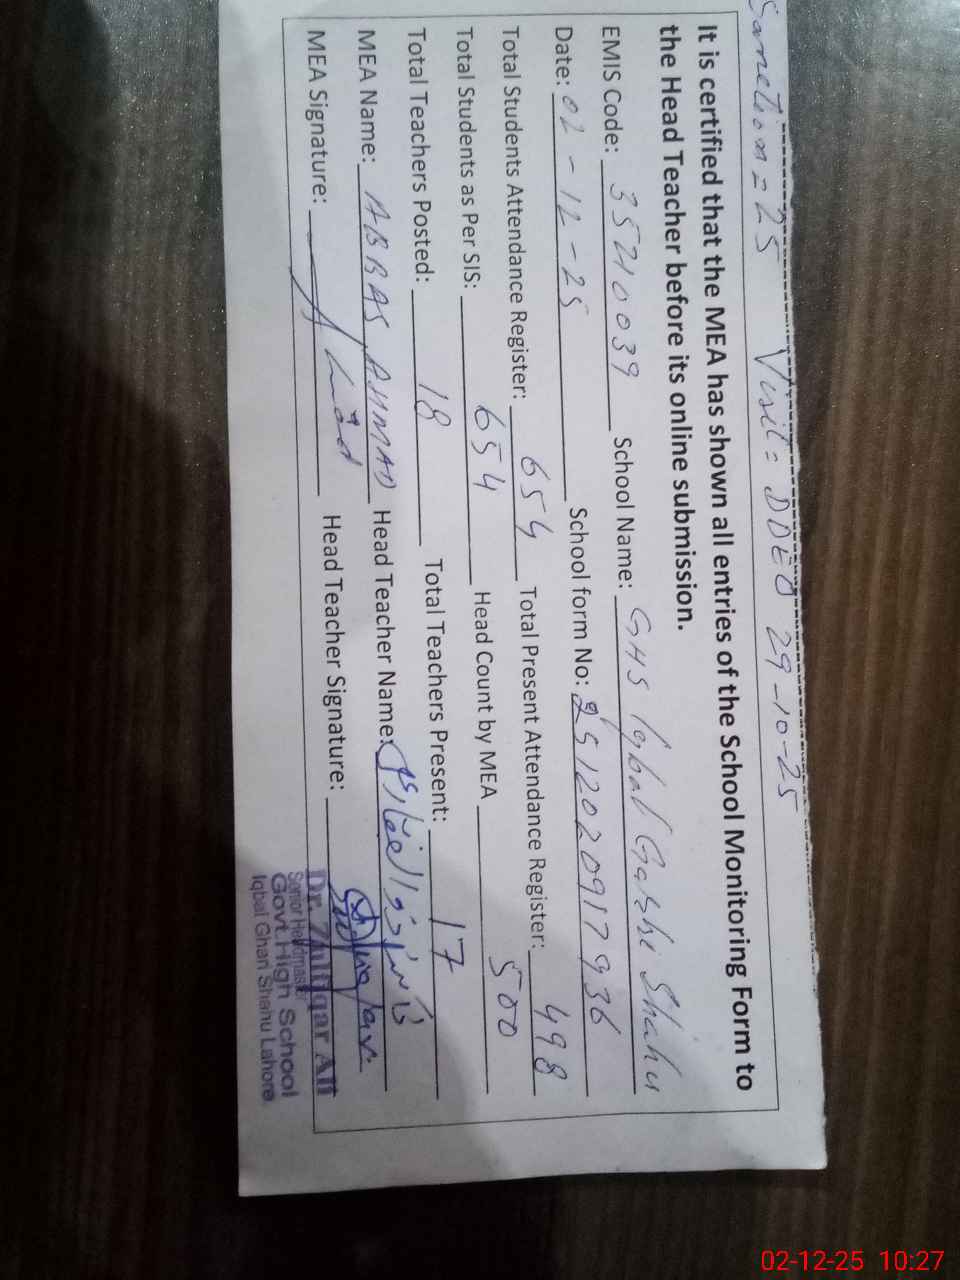 Sanction = 25 Visit = DDEO 29-10-25
It is certified that the MEA has shown all entries of the School Monitoring Form to
the Head Teacher before its online submission.
EMIS Code: 35210039 School Name: GHS Iqbal Garhi Shahu
Date: 02-12-25 School form No: 2512020917936
Total Students Attendance Register: 654 Total Present Attendance Register: 498
Total Students as Per SIS: 654 Head Count by MEA 500
Total Teachers Posted: 18 Total Teachers Present: 17
MEA Name: ABBAS AHMAD Head Teacher Name:
MEA Signature: Head Teacher Signature:
Dr. Zulfiqar Ali
Senior Headmaster
Govt. High School
Iqbal Ghari Shahu Lahore
02-12-25 10:27